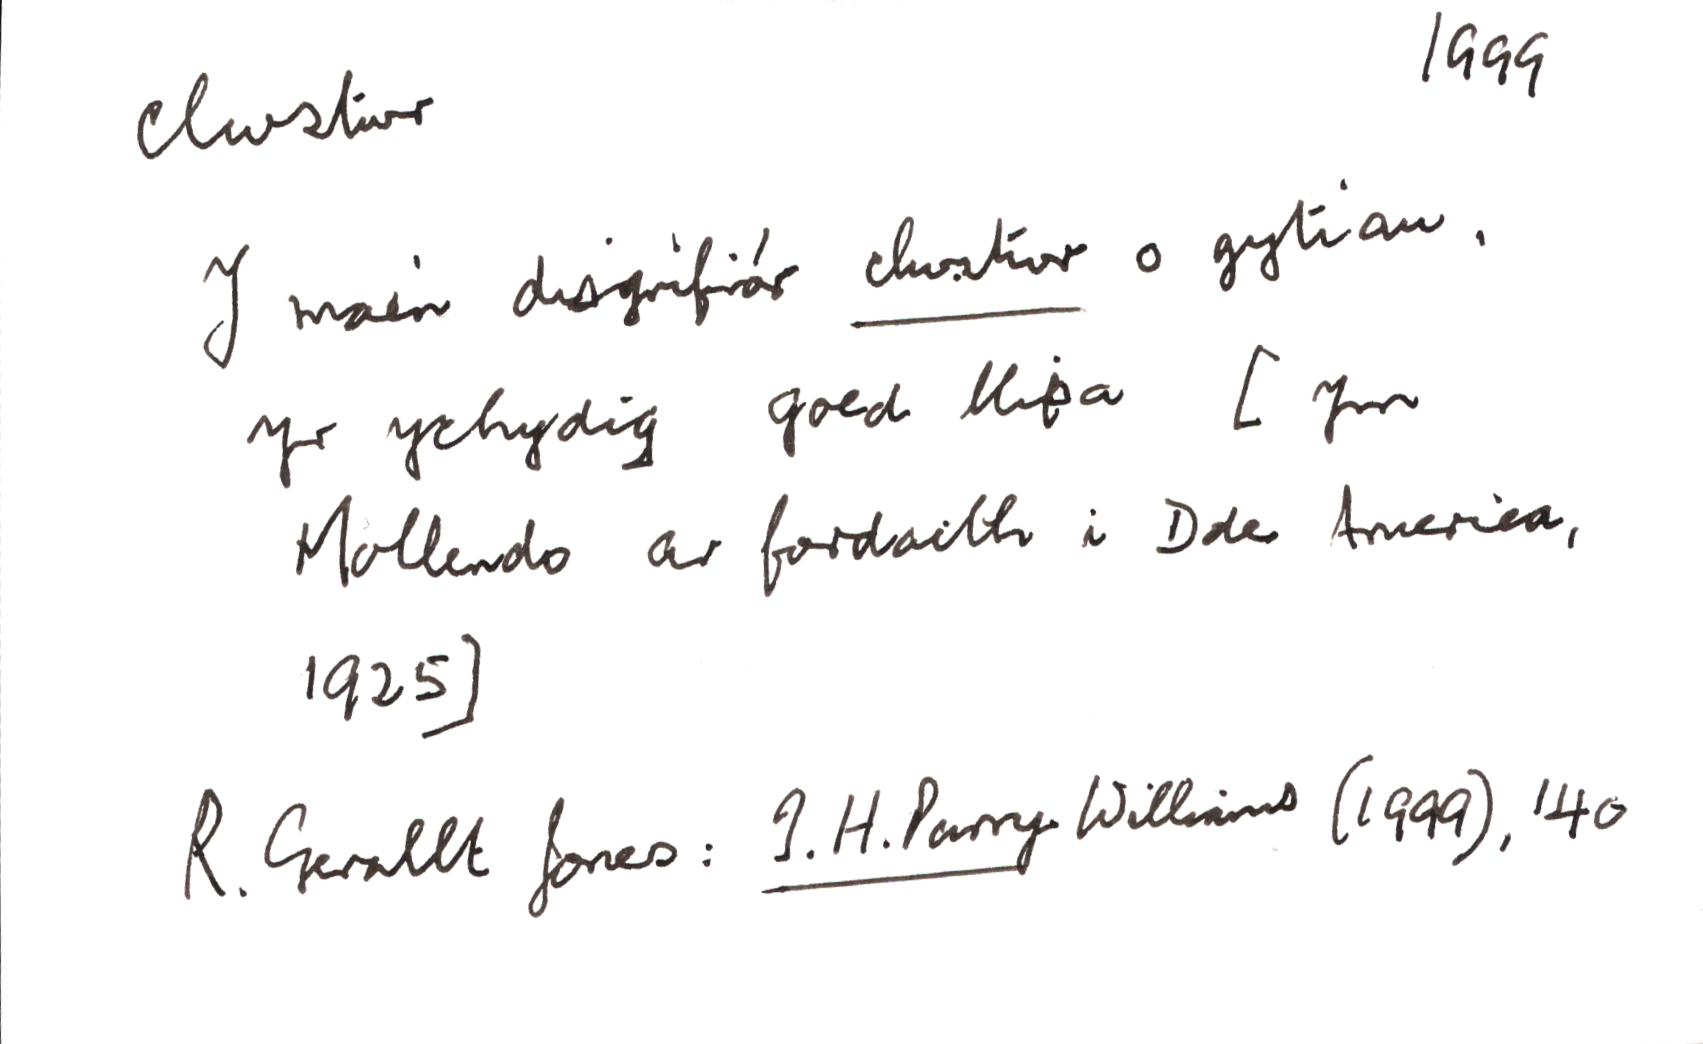 1999
clwstwr
Y mae'n disgrifio'r clwstwr o gytiau,
yr ychydig goed llipa [ym
Mollendo ar fordaith i Dde America,
1925]
R. Gerallt Jones: T. H. Parry-Williams (1999), 140